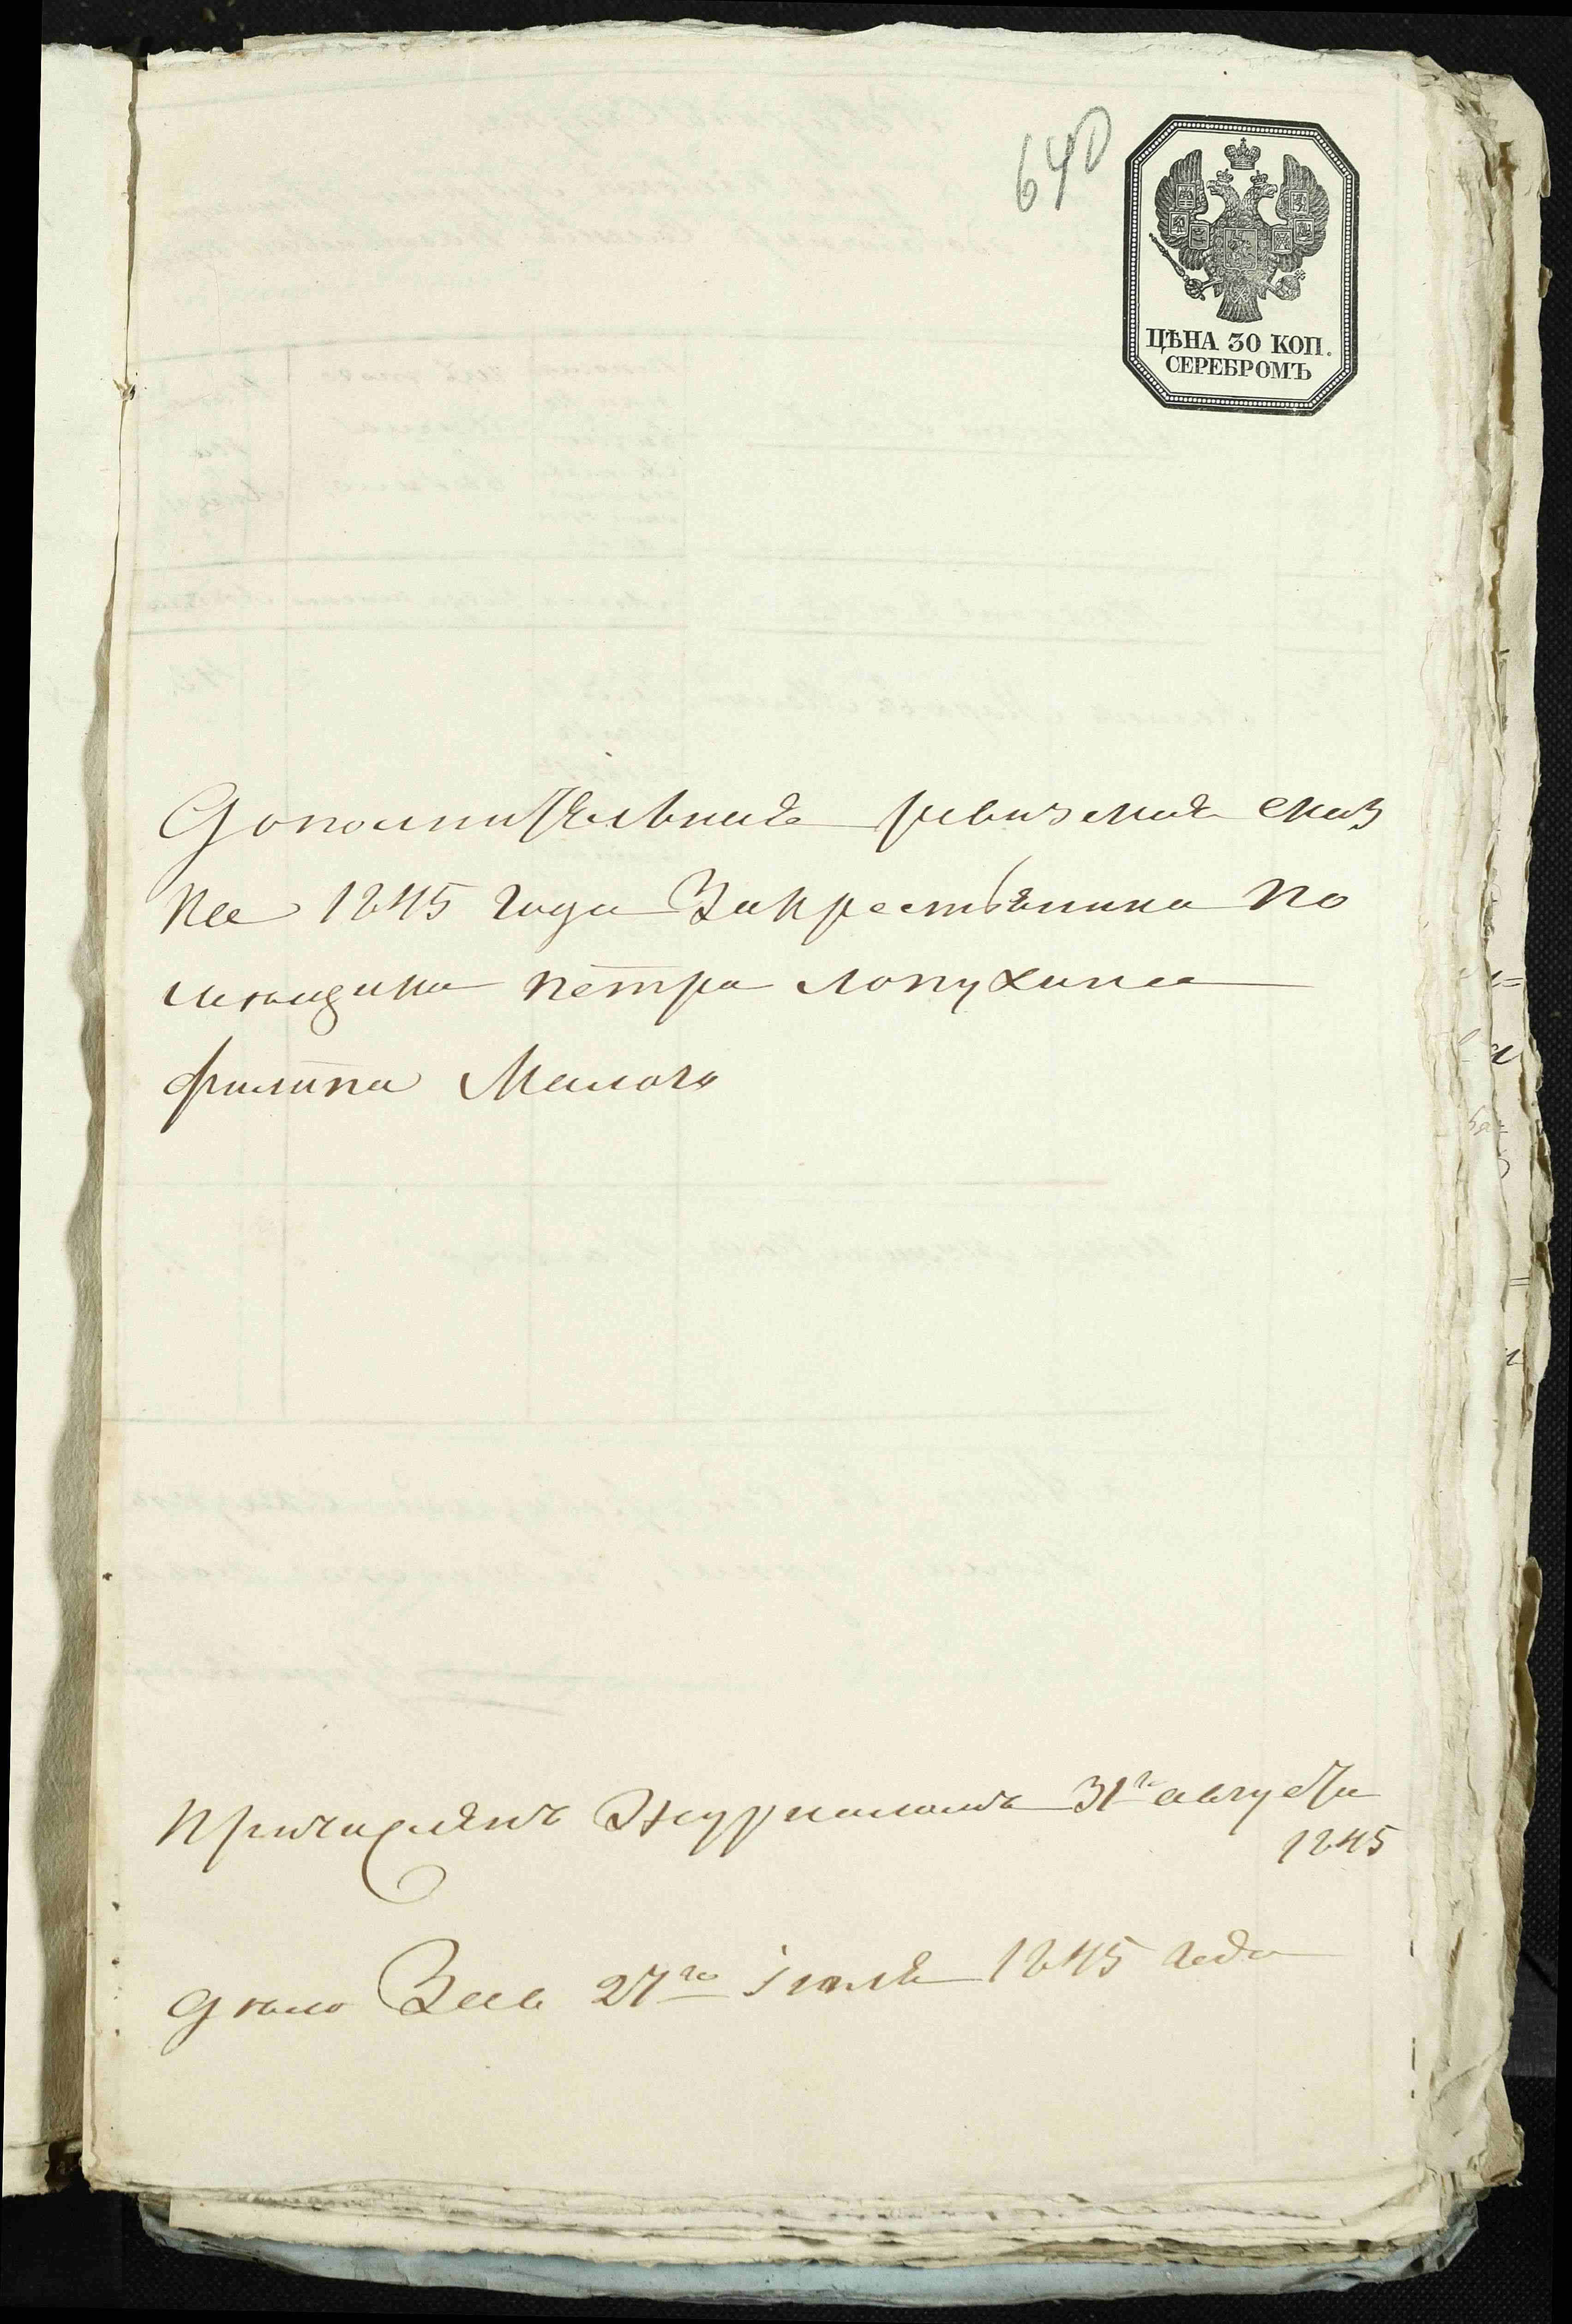 640
ЦѢНА 30 КОП.
СЕРЕБРОМЪ
Дополнительная ревизская сказ
ка 1845 года Закрестьянина По
мющика Петра Лопухина
Филипа Малого
Причисленъ Журналомъ 31го августа
1845
Дюло 27го Июля 1845 года